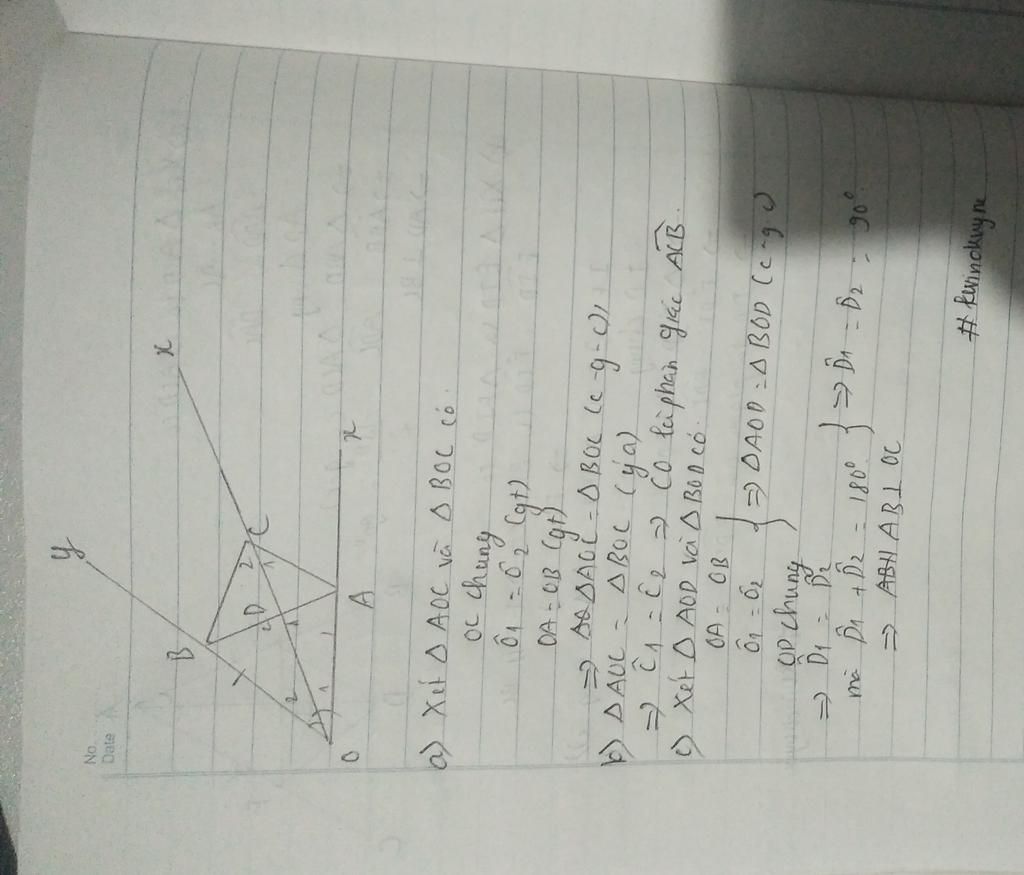 No.
Date
y
x
B
2
C
D
1
2
1
2
1
x
O
A
a) Xét Δ AOC và Δ BOC có.
OC chung
Ô1 = Ô2 (gt)
OA = OB (gt)
=> ΔAOC = ΔBOC (c-g-c)
b) ΔAOC = ΔBOC (ý a)
=> Ĉ1 = Ĉ2 => CO là phân giác ACB.
c) Xét Δ AOD và Δ BOD có.
OA = OB
Ô1 = Ô2
OD chung
} => ΔAOD = ΔBOD (c-g.c)
=> D̂1 = D̂2
mà D̂1 + D̂2 = 180° } => D̂1 = D̂2 = 90°.
=> AB ⊥ OC